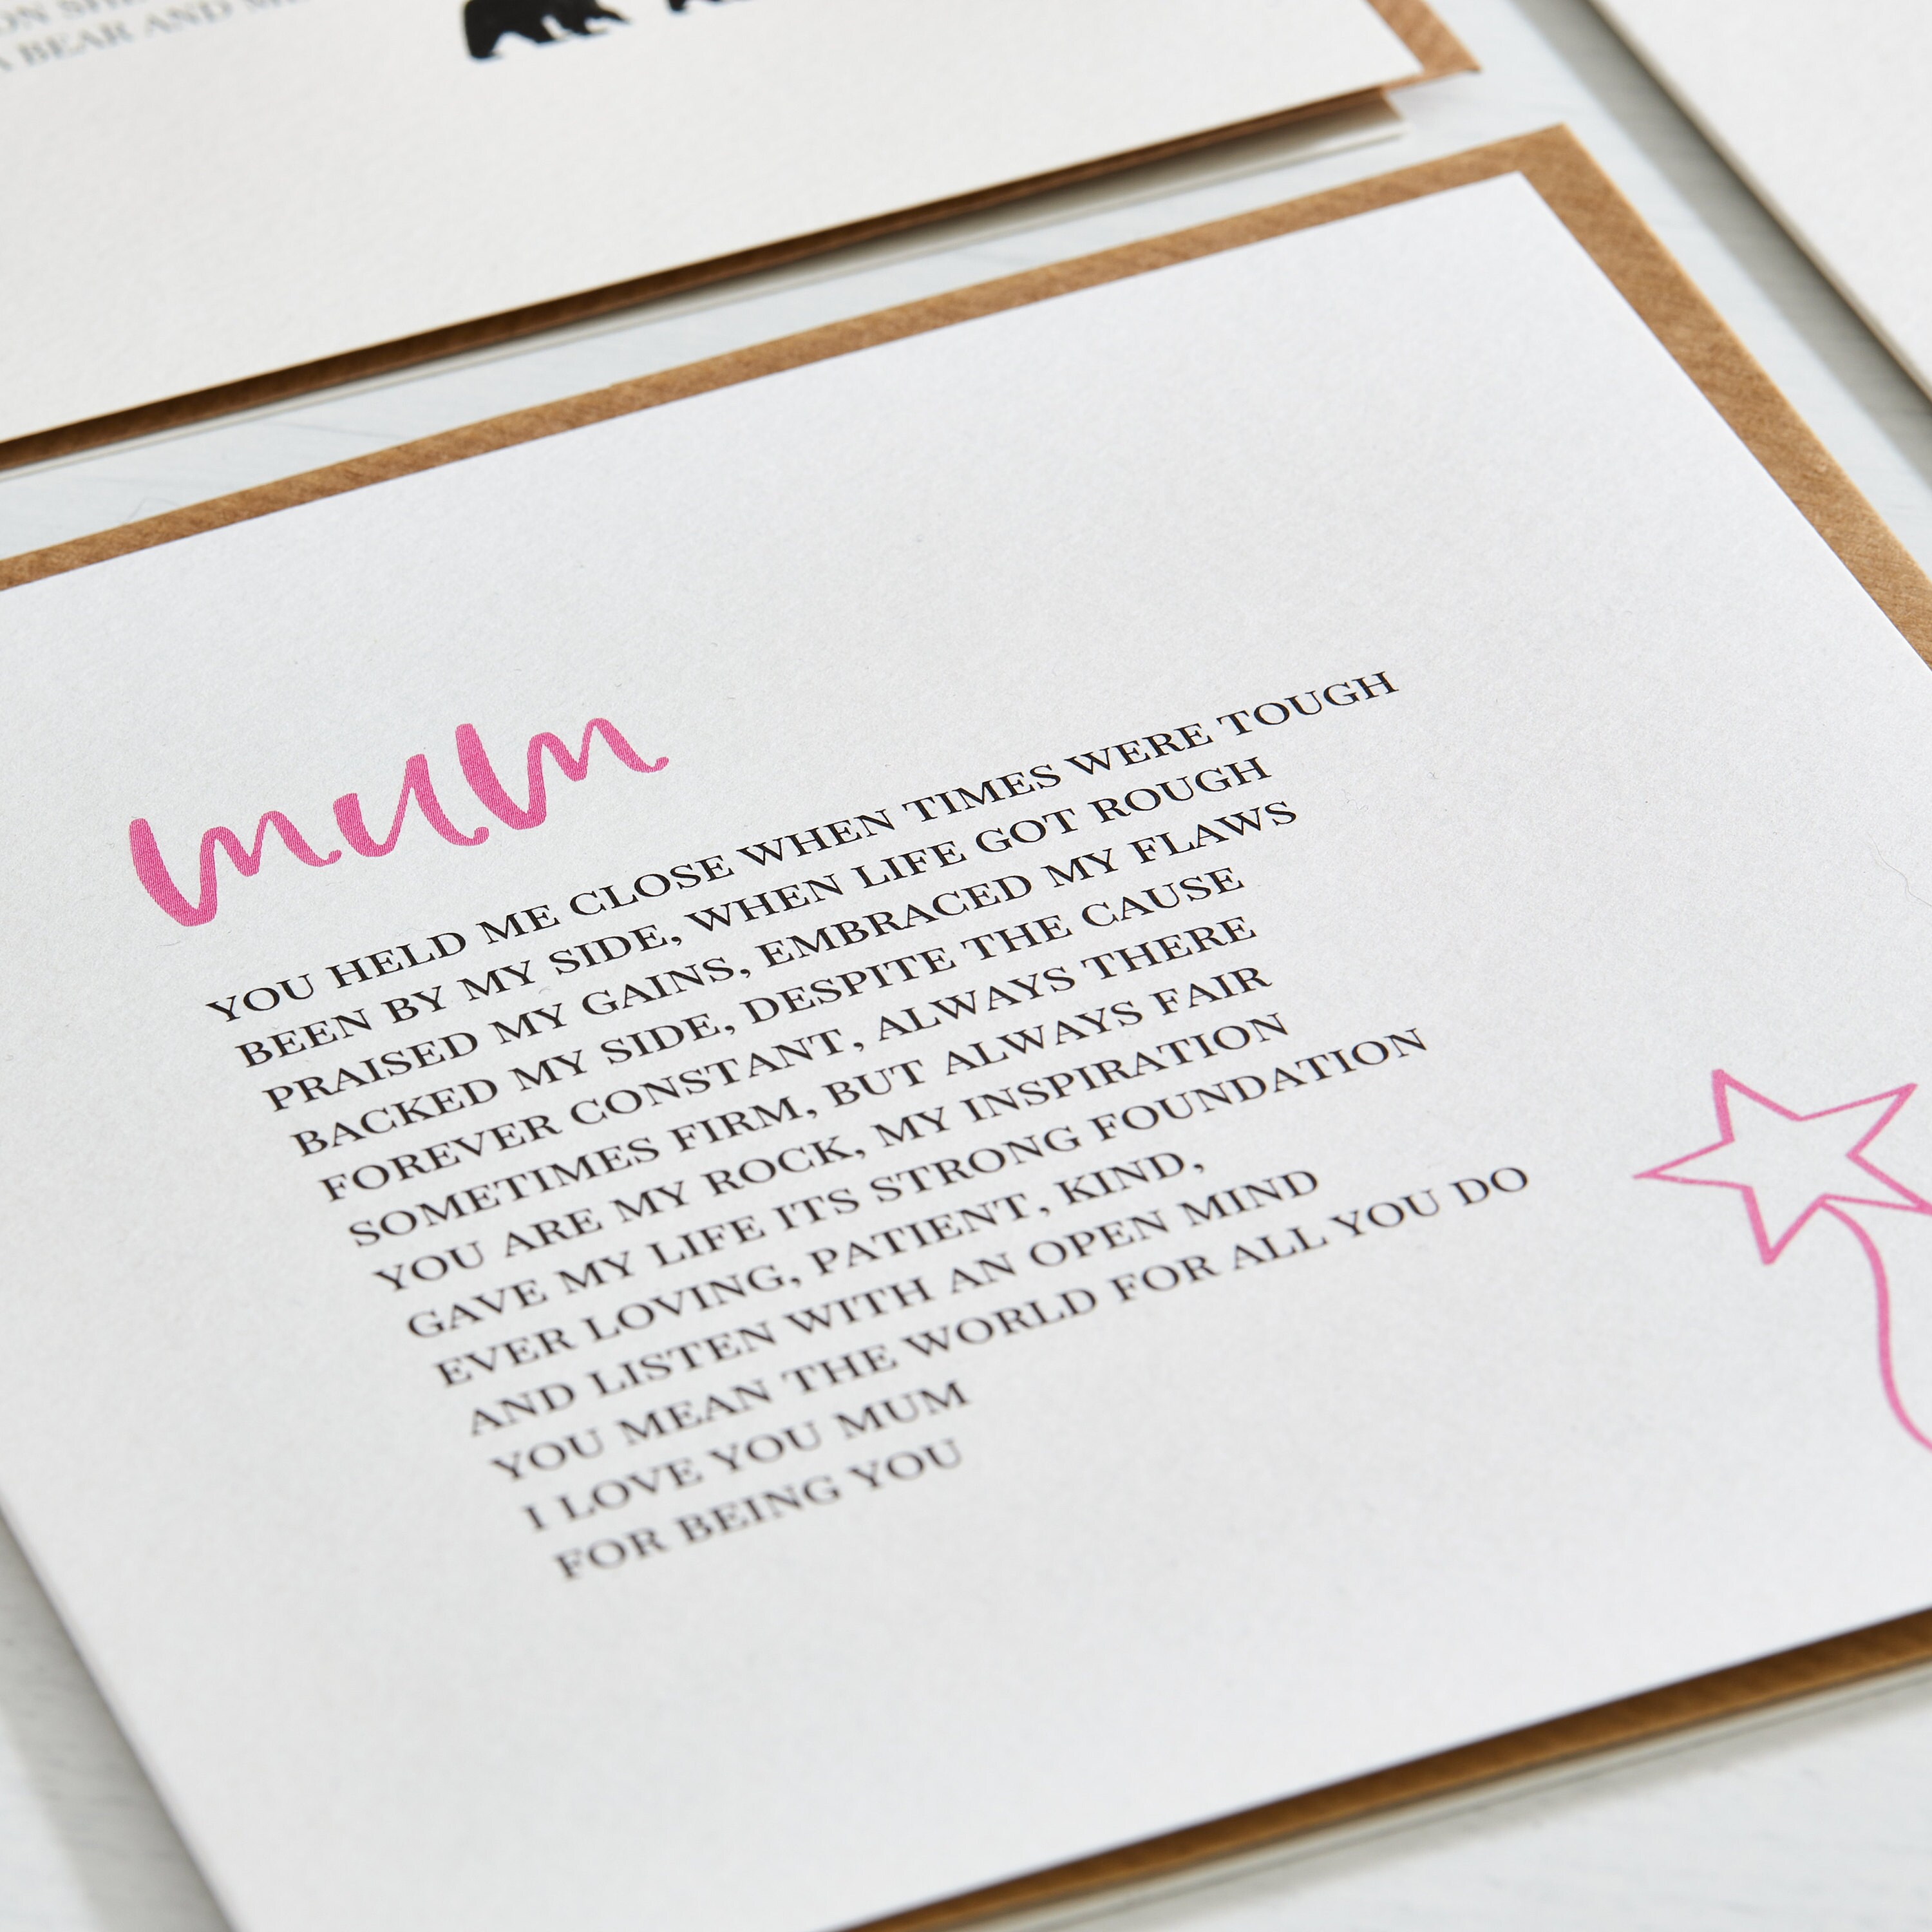 BEAR AND
mum
YOU HELD ME CLOSE WHEN TIMES WERE TOUGH
BEEN BY MY SIDE, WHEN LIFE GOT ROUGH
PRAISED MY GAINS, EMBRACED MY FLAWS
BACKED MY SIDE, DESPITE THE CAUSE
FOREVER CONSTANT, ALWAYS THERE
SOMETIMES FIRM, BUT ALWAYS FAIR
YOU ARE MY ROCK, MY INSPIRATION
GAVE MY LIFE ITS STRONG FOUNDATION
EVER LOVING, PATIENT, KIND,
AND LISTEN WITH AN OPEN MIND
YOU MEAN THE WORLD FOR ALL YOU DO
I LOVE YOU MUM
FOR BEING YOU